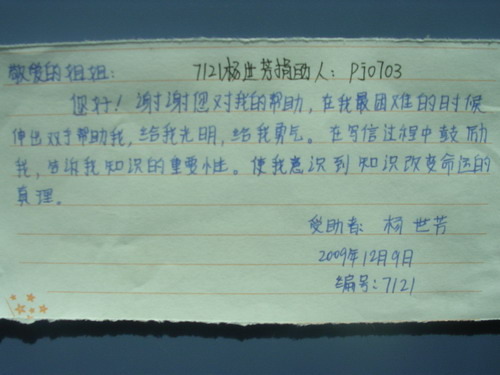 敬爱的姐姐: 7121杨世芳捐助人: pjo703
您好!谢谢您对我的帮助,在我最困难的日时候
伸出双手帮助我,给我光明,给我勇气。在写信过程中鼓励
我,告诉我知识的重要性。使我意识到知识改变命运的
真理。
受助者: 杨世芳
2009年12月9日
编号:7121